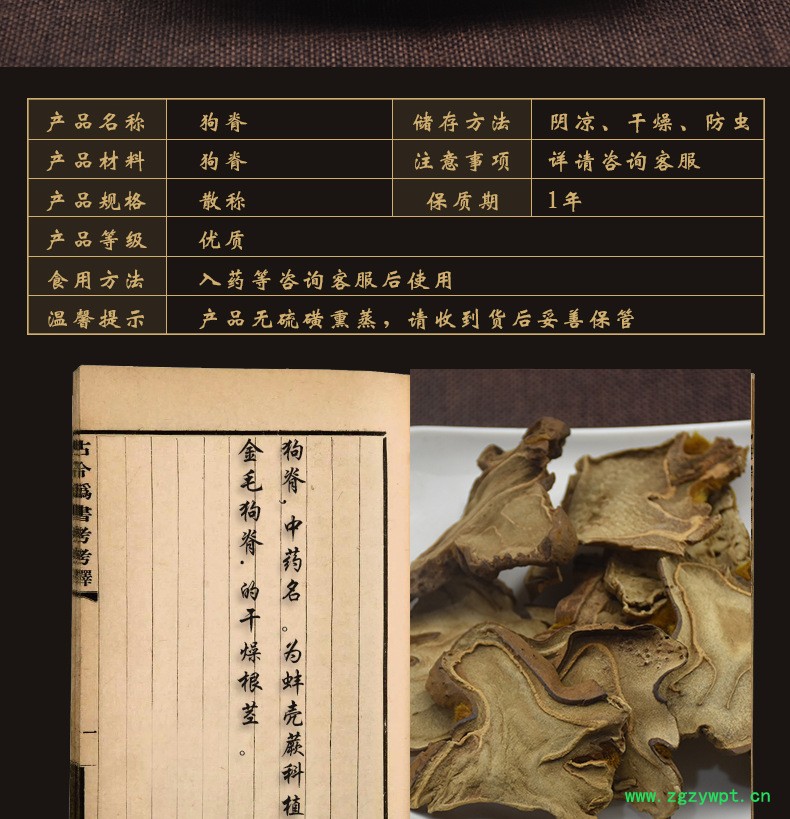 产品名称 狗脊 储存方法 阴凉、干燥、防虫
产品材料 狗脊 注意事项 详请咨询客服
产品规格 散称 保质期 1年
产品等级 优质
食用方法 入药等咨询客服后使用
温馨提示 产品无硫磺熏蒸，请收到货后妥善保管
狗脊，中药名。为蚌壳蕨科植
金毛狗脊．的干燥根茎。
古今偽書考考釋
一
www.zgzywpt.cn